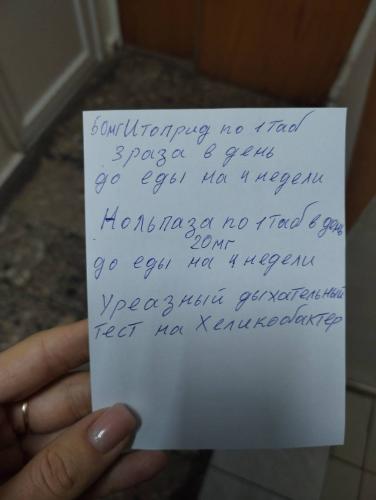 50мг Итоприд по 1 таб
3 раза в день
до еды на 4 недели
Нольпаза по 1 таб в день
20мг
до еды на 4 недели
Уреазный дыхательный
тест на Хеликобактер